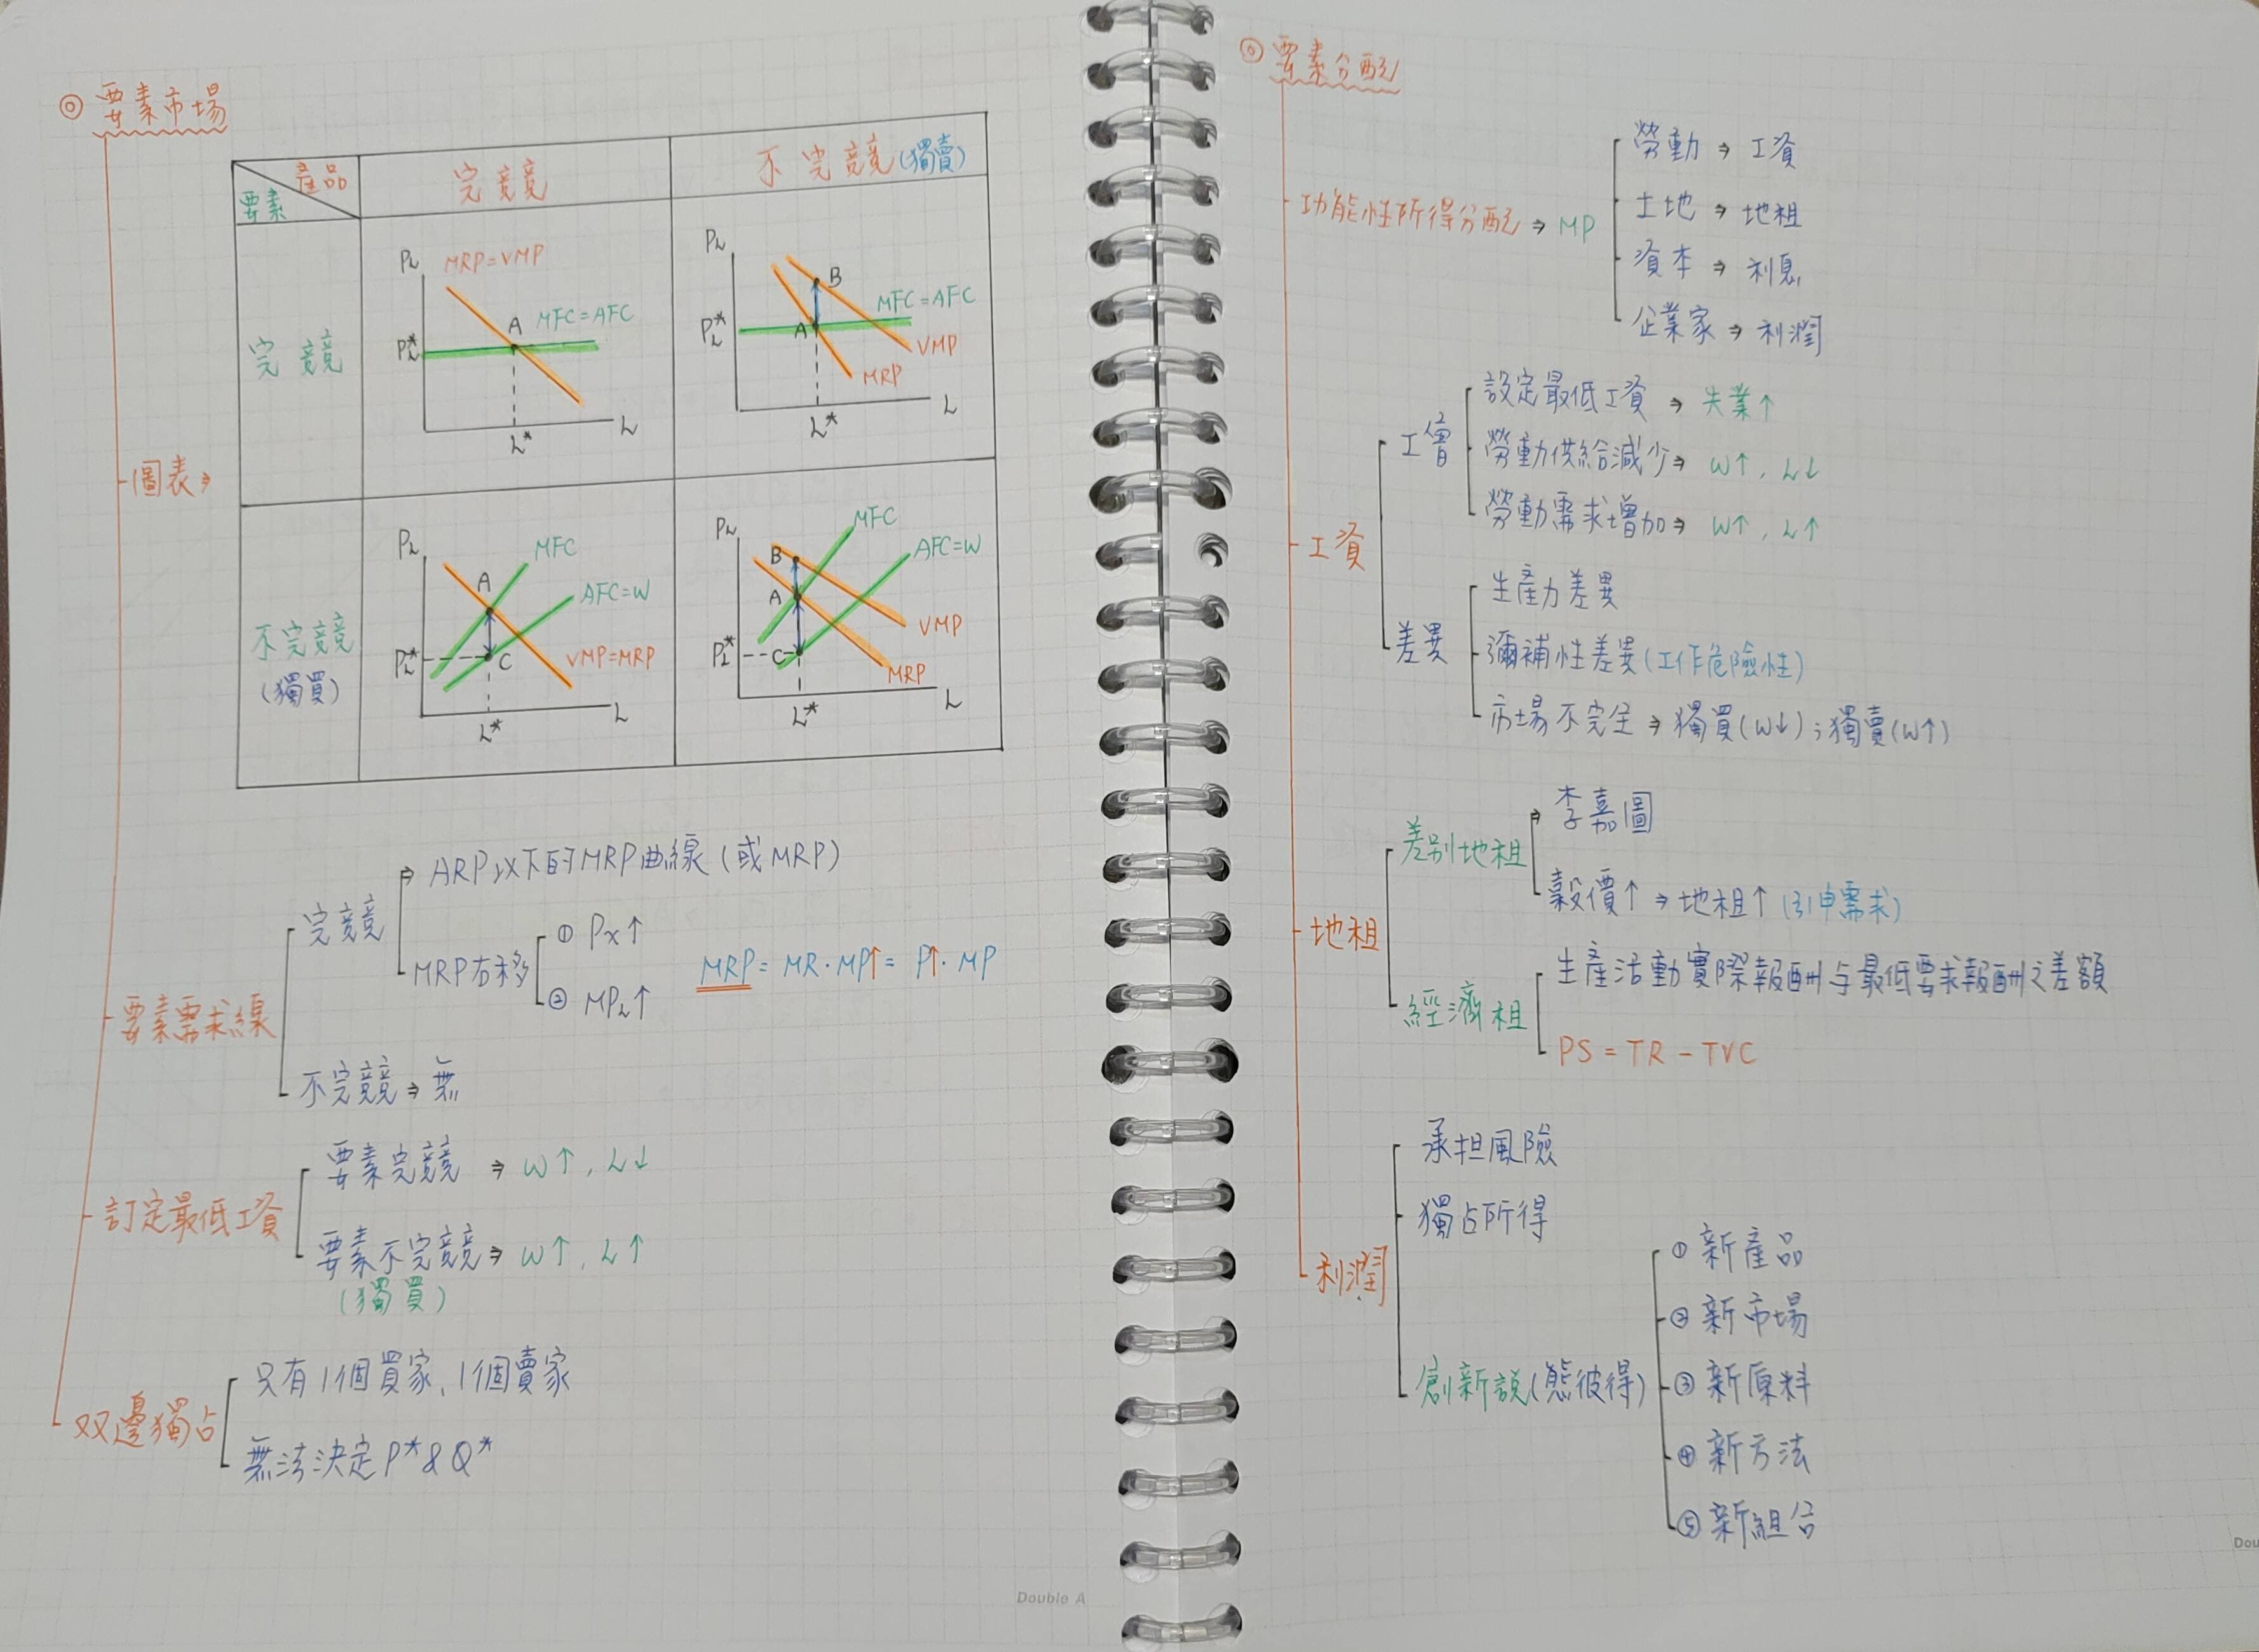 ◎ 要素市場
產品
要素
完競
不完競(獨賣)
圖表⇒
完競
PL
MRP=VMP
A
MFC=AFC
PL*
L*
L
PL
B
MFC=AFC
PL*
A
VMP
MRP
L*
L
不完競
(獨買)
PL
MFC
A
AFC=W
PL*
C
VMP=MRP
L*
L
PL
MFC
B
AFC=W
A
VMP
PL*
C
MRP
L*
L
要素需求線
完競
⇒ ARP以下的MRP曲線(或MRP)
MRP右移
① Px↑
② MPL↑
MRP = MR·MP↑ = P↑·MP
不完競⇒無
訂定最低工資
要素完競 ⇒ W↑, L↓
要素不完競⇒ W↑, L↑
(獨買)
双邊獨占
只有1個買家、1個賣家
無法決定P*&Q*
Double A
◎ 要素分配
功能性所得分配⇒ MP
勞動⇒工資
土地⇒地租
資本⇒利息
企業家⇒利潤
工資
工會
設定最低工資 ⇒ 失業↑
勞動供給減少⇒ W↑, L↓
勞動需求增加⇒ W↑, L↑
差異
生產力差異
彌補性差異(工作危險性)
市場不完全⇒獨買(W↓);獨賣(W↑)
地租
差別地租
⇒李嘉圖
穀價↑⇒地租↑(引申需求)
經濟租
生產活動實際報酬与最低要求報酬之差額
PS = TR - TVC
利潤
承担風險
獨占所得
創新說(熊彼得)
① 新產品
② 新市場
③ 新原料
④ 新方法
⑤ 新組合
Dou